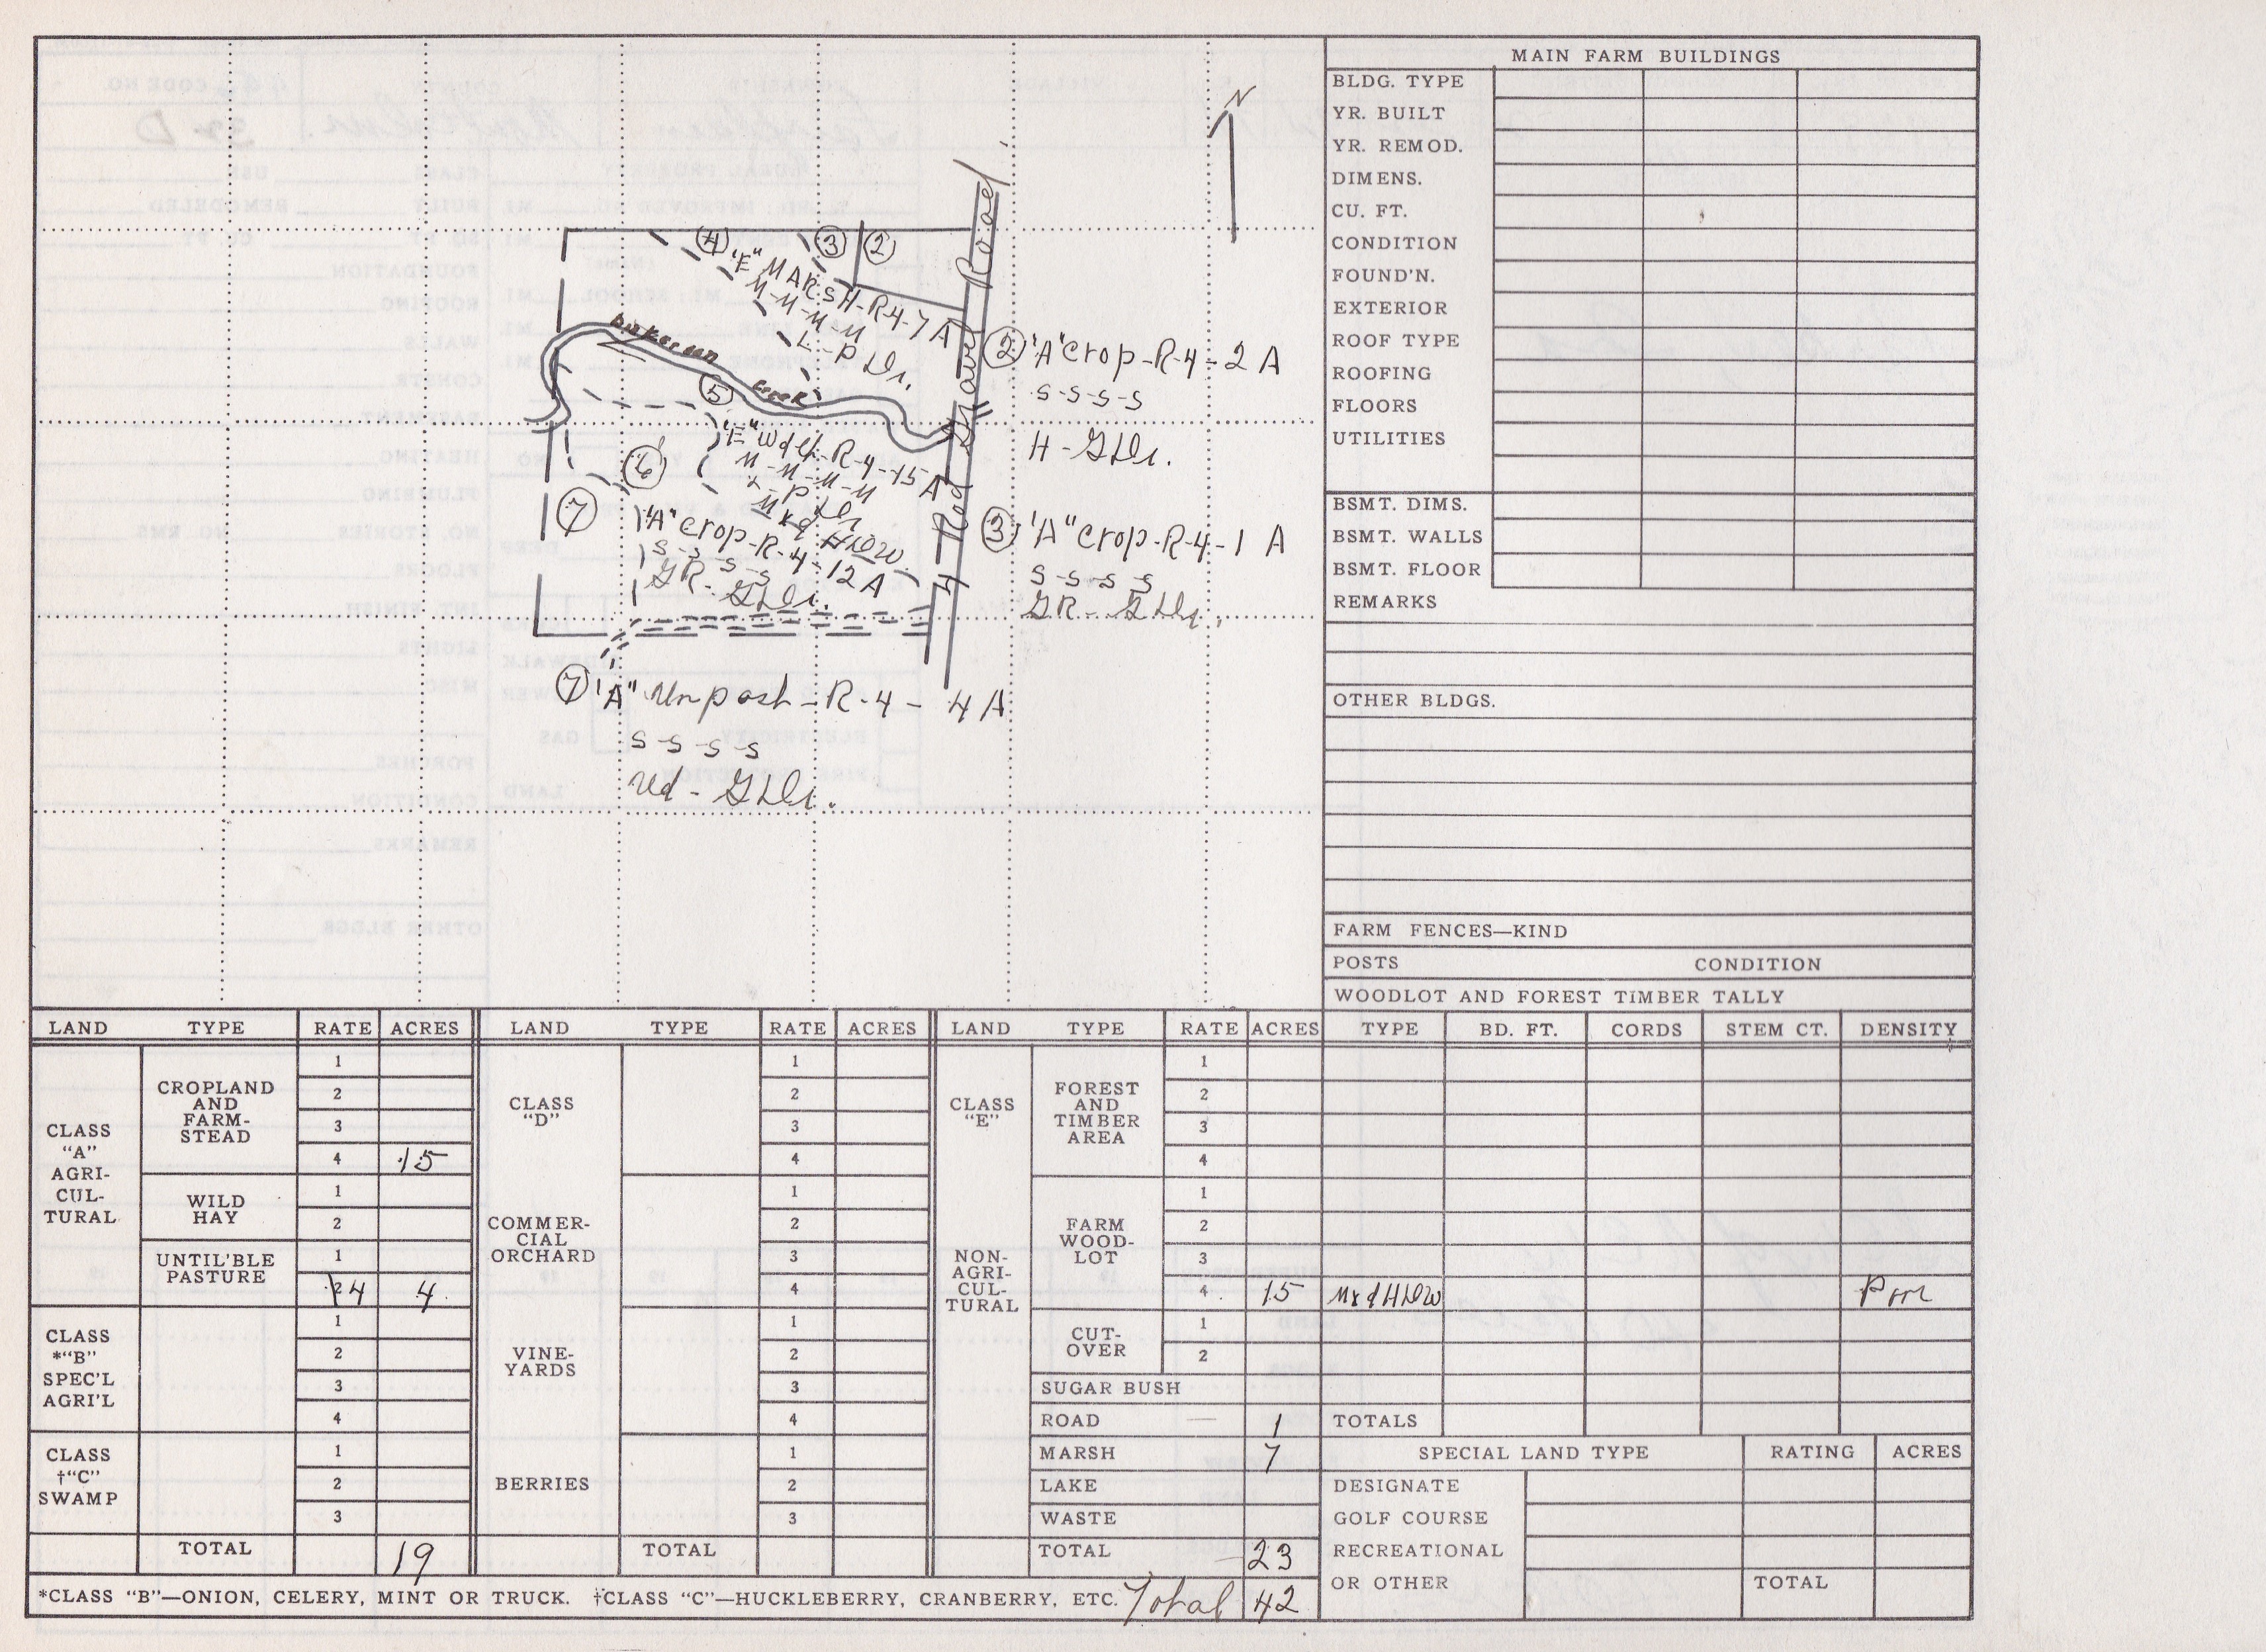 N
④ ③ ②
"E" MARSH-R-4-7 A
M-M-M-M
L-P Dr.
Dickerson
Creek
4 Rod Gravel Road
② "A" crop-R-4-2 A
S-S-S-S
H-GLDr.
⑤
"E" Wdlt-R-4-15 A
M-M-M-M
L-P Dr
Mxd HDW.
⑥
⑦
"A" crop-R-4-12 A
S-S-S-S
GR-GLDr.
③ "A" crop-R-4-1 A
S-S-S-S
GR-GLDr.
⑦ "A" Unpast-R-4-4 A
S-S-S-S
Ud-GLDr.
MAIN FARM BUILDINGS
BLDG. TYPE
YR. BUILT
YR. REMOD.
DIMENS.
CU. FT.
CONDITION
FOUND'N.
EXTERIOR
ROOF TYPE
ROOFING
FLOORS
UTILITIES
BSMT. DIMS.
BSMT. WALLS
BSMT. FLOOR
REMARKS
OTHER BLDGS.
FARM FENCES—KIND
POSTS CONDITION
WOODLOT AND FOREST TIMBER TALLY
TYPE BD. FT. CORDS STEM CT. DENSITY
Mxd HDW Pm
TOTALS
SPECIAL LAND TYPE RATING ACRES
DESIGNATE
GOLF COURSE
RECREATIONAL
OR OTHER TOTAL
LAND TYPE RATE ACRES
CLASS
"A"
AGRI-
CUL-
TURAL
CROPLAND
AND
FARM-
STEAD
1
2
3
4 15
WILD
HAY
1
2
UNTIL'BLE
PASTURE
1
2 4 4
CLASS
*"B"
SPEC'L
AGRI'L
1
2
3
4
CLASS
†"C"
SWAMP
1
2
3
TOTAL 19
LAND TYPE RATE ACRES
CLASS
"D"
1
2
3
4
COMMER-
CIAL
ORCHARD
1
2
3
4
VINE-
YARDS
1
2
3
4
BERRIES
1
2
3
TOTAL
LAND TYPE RATE ACRES
CLASS
"E"
NON-
AGRI-
CUL-
TURAL
FOREST
AND
TIMBER
AREA
1
2
3
4
FARM
WOOD-
LOT
1
2
3
4 15
CUT-
OVER
1
2
SUGAR BUSH
ROAD — 1
MARSH 7
LAKE
WASTE
TOTAL 23
*CLASS "B"—ONION, CELERY, MINT OR TRUCK. †CLASS "C"—HUCKLEBERRY, CRANBERRY, ETC. Total 42